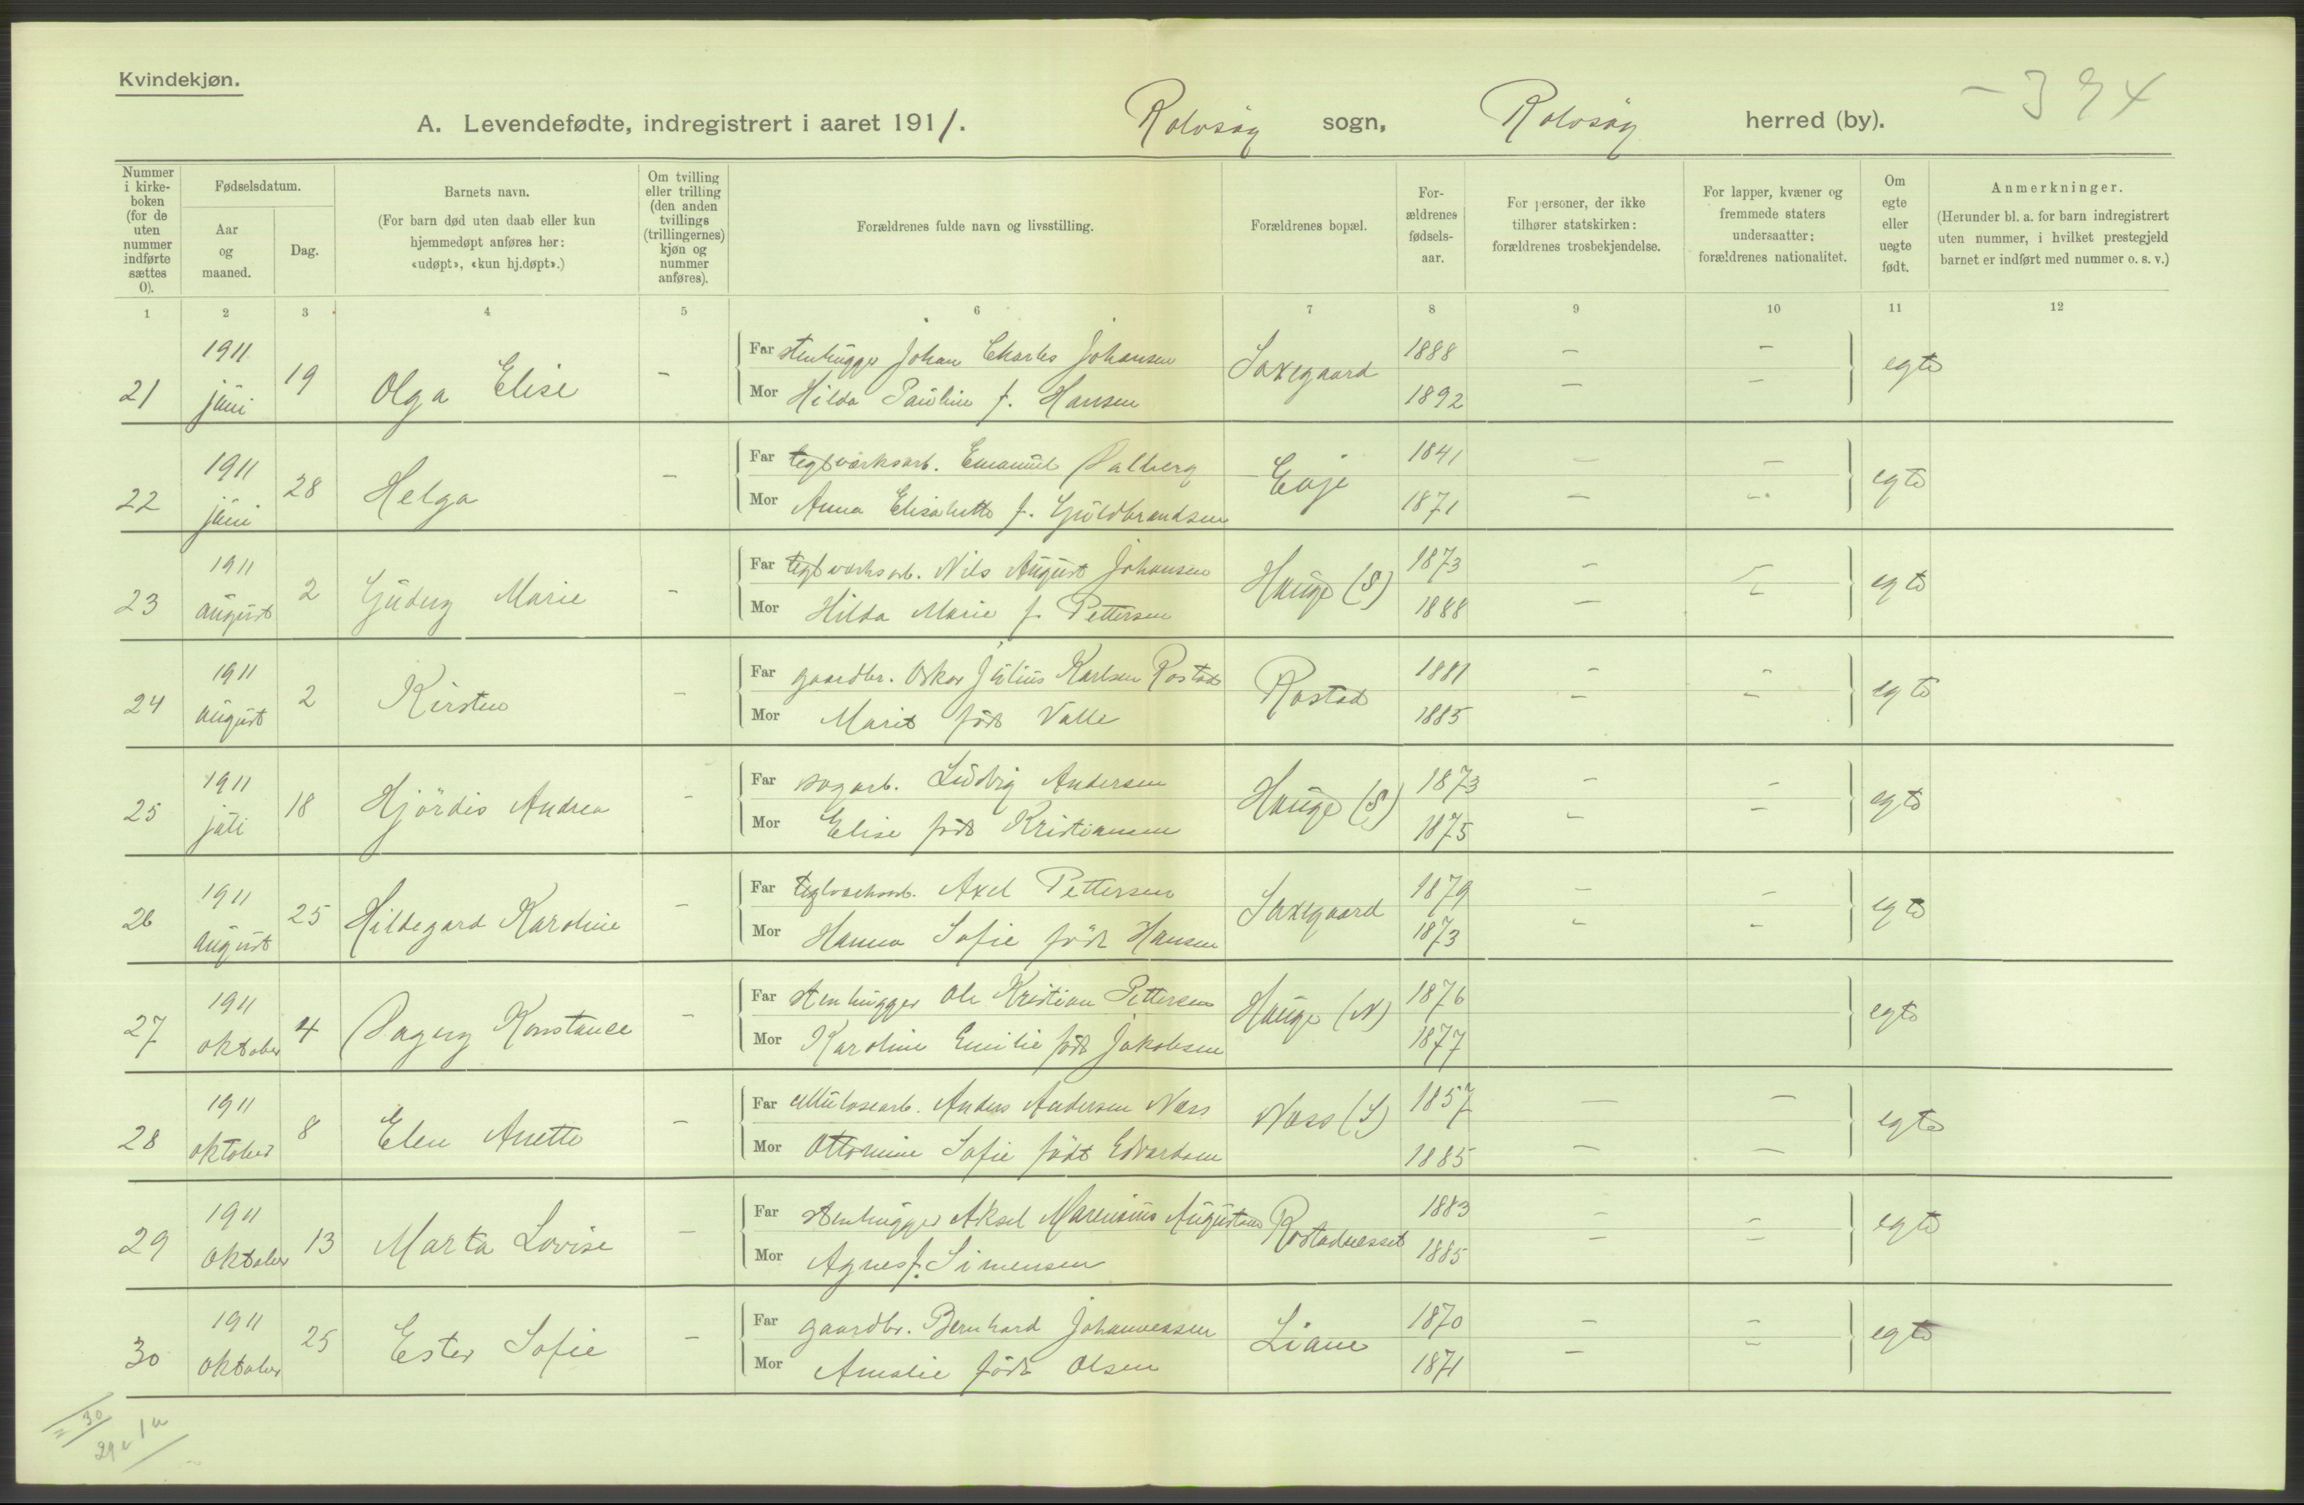 Kvindekjøn.
A. Levendefødte, indregistrert i aaret 1911. Rolvsøy sogn, Rolvsøy herred (by).
Nummer i kirke-boken (for de uten nummer indførte sættes 0).
Fødselsdatum.
Aar og maaned.
Dag.
Barnets navn.
(For barn død uten daab eller kun hjemmedøpt anføres her: «udøpt», «kun hj.døpt».)
Om tvilling eller trilling (den anden tvillings (trillingernes) kjøn og nummer anføres).
Forældrenes fulde navn og livsstilling.
Forældrenes bopæl.
For-ældrenes fødsels-aar.
For personer, der ikke tilhører statskirken: forældrenes trosbekjendelse.
For lapper, kvæner og fremmede staters undersaatter; forældrenes nationalitet.
Om egte eller uegte født.
Anmerkninger.
(Herunder bl. a. for barn indregistrert uten nummer, i hvilket prestegjeld barnet er indført med nummer o. s. v.)
1 2 3 4 5 6 7 8 9 10 11 12
21 1911 juni 19 Olga Elise - Far stenhugger Johan Charles Johansen Saxegaard 1888 - - egte
Mor Hilda Pauline f. Hansen 1892 - -
22 1911 juni 28 Helga - Far teglværksarb. Emanuel Dalberg Evje 1841 - - egte
Mor Anna Elisabette f. Guldbrandsen 1871 - -
23 1911 august 2 Gudny Marie - Far teglværksarb. Nils August Johansen Hauge (S) 1873 - - egte
Mor Hilda Marie f. Pettersen 1888 - -
24 1911 august 2 Kirsten - Far gaardbr. Oskar Julius Karlsen Rostad Rostad 1881 - - egte
Mor Marit født Valle 1885 - -
25 1911 juli 18 Hjördis Andrea - Far sagarb. Ludvig Andersen Hauge (S) 1873 - - egte
Mor Elise født Kristiansen 1875 - -
26 1911 august 25 Hildegard Karoline - Far teglværksarb. Axel Pettersen Saxegaard 1879 - - egte
Mor Hanna Sofie født Hansen 1873 - -
27 1911 oktober 4 Dagny Konstance - Far stenhugger Ole Kristian Pettersen Hauge (N) 1876 egte
Mor Karoline Emilie født Jakobsen 1877
28 1911 oktober 8 Elen Anette - Far cellulosearb. Anders Andersen Næss Næss (S) 1857 - - egte
Mor Ottomine Sofie født Edvardsen 1885 - -
29 1911 oktober 13 Marta Lovise - Far stenhugger Aksel Marensius Augustsen Rostadnesset 1883 - - egte
Mor Agnes f. Simensen 1885 - -
30 1911 oktober 25 Ester Sofie - Far gaardbr. Bernhard Johannessen Liane 1870 - - egte
Mor Amalie født Olsen 1871 - -
30